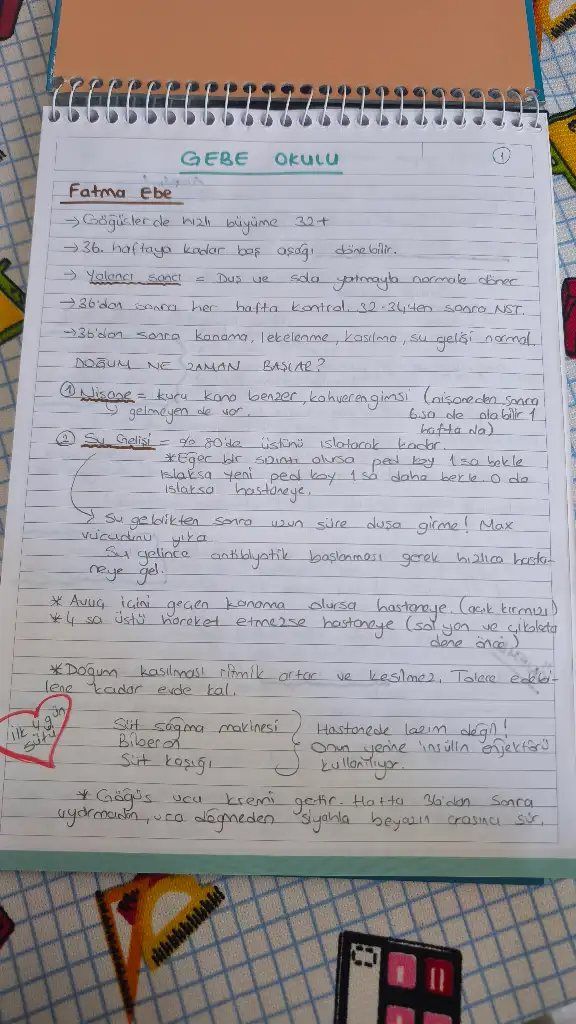 GEBE OKULU
1
Fatma Ebe
→ Göğüslerde hızlı büyüme 32+
→ 36. haftaya kadar baş aşağı dönebilir.
→ Yalancı sancı = Duş ve sola yatmayla normale döner
→ 36'dan sonra her hafta kontrol. 32-34'ten sonra NST.
→ 36'dan sonra kanama, lekelenme, kasılma, su gelişi normal.
DOĞUM NE ZAMAN BAŞLAR?
① Nişane = kuru kana benzer, kahverengimsi (nişaneden sonra
→ gelmeyen de var. 6 sa de olabilir 1
hafta da)
② Su Gelişi = % 80'de üstünü ıslatacak kadar.
* Eğer bir sızıntı olursa ped koy 1 sa bekle
ıslaksa yeni ped koy 1 sa daha bekle. O da
ıslaksa hastaneye.
→ Su geldikten sonra uzun süre duşa girme! Max
vücudunu yıka
Su gelince antibiyotik başlanması gerek hızlıca hasta-
neye gel.
* Avuç içini geçen kanama olursa hastaneye. (açık kırmızı)
* 4 sa üstü hareket etmezse hastaneye (sol yan ve çikolata
dene önce)
* Doğum kasılması ritmik artar ve kesilmez. Tolere edebi-
lene kadar evde kal.
ilk 4 gün
sütü
Süt sağma makinesi
Biberon
Süt kaşığı
Hastanede lazım değil!
Onun yerine insülin enjektörü
kullanılıyor.
* Göğüs ucu kremi getir. Hatta 36'dan sonra
uyarmadan, uca değmeden siyahla beyazın arasına sür.